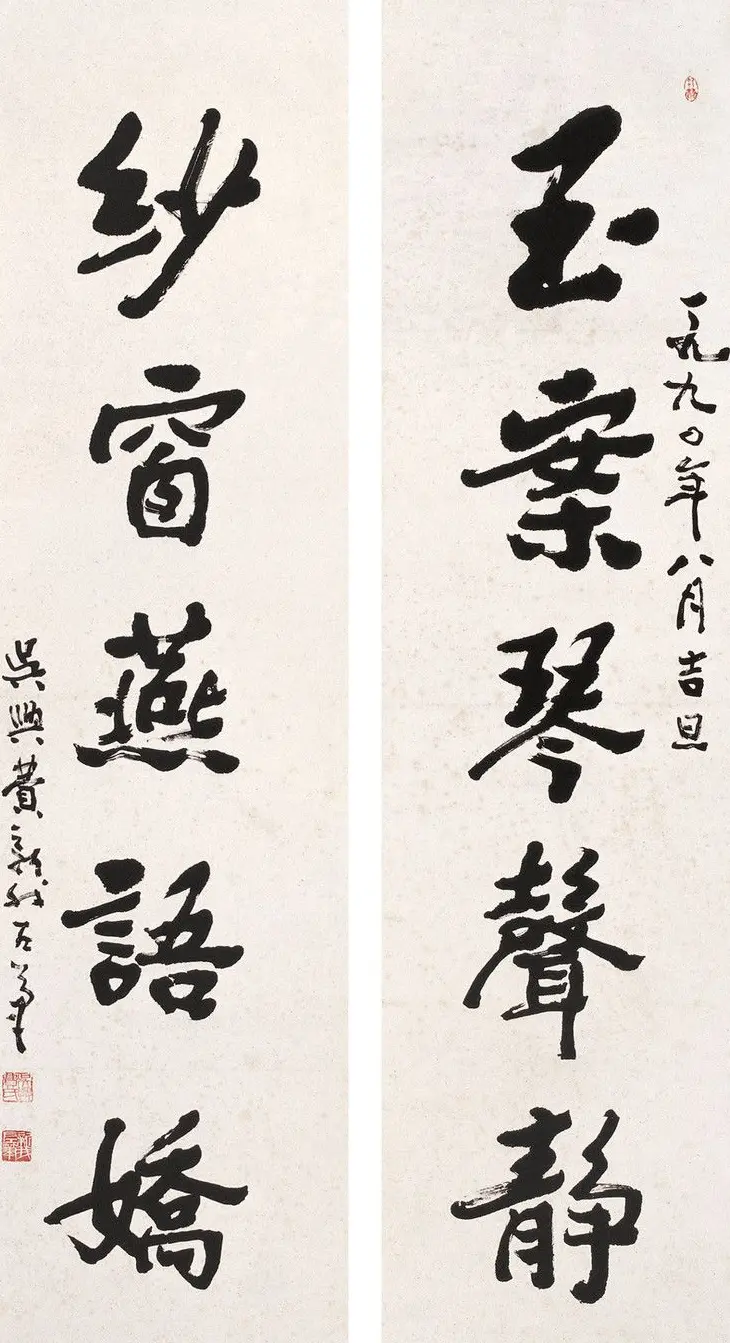 一九九〇年八月吉旦
玉案琴聲静
紗窗燕語嬌
吳興費新我左筆